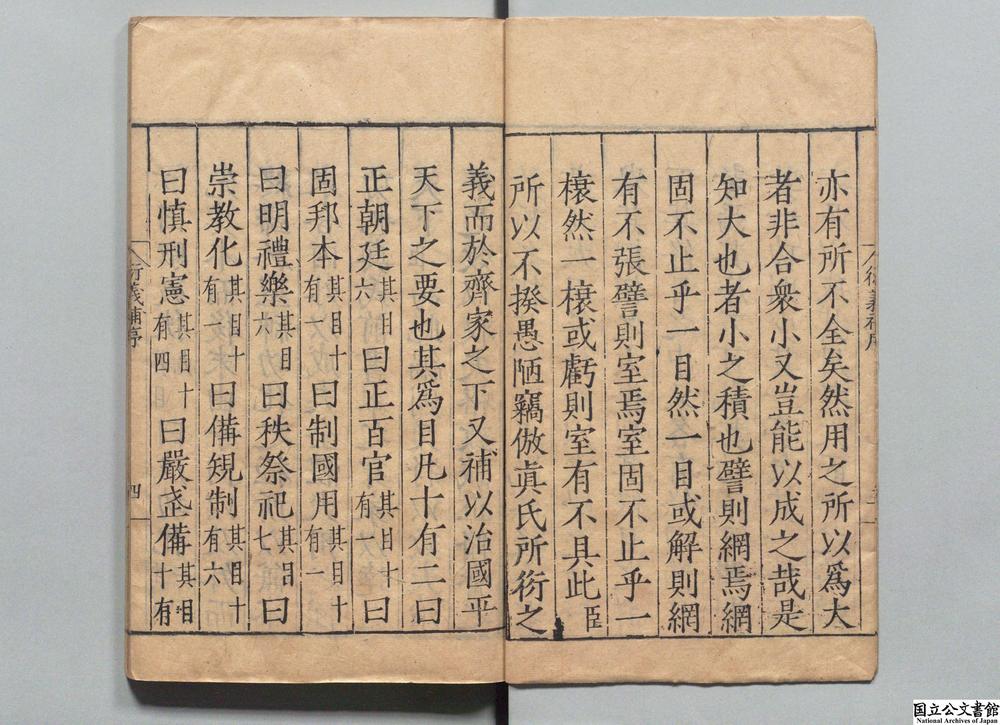 亦有所不全矣然用之所以爲大
者非合衆小又豈能以成之哉是
知大也者小之積也譬則網焉網
固不止乎一目然一目或解則網
有不張譬則室焉室固不止乎一
榱然一榱或虧則室有不具此臣
所以不揆愚陋竊倣眞氏所衍之
義而於齊家之下又補以治國平
天下之要也其爲目凡十有二曰
正朝廷其目六曰正百官其目十有一曰
固邦本其目十有一曰制國用其目十有一
曰明禮樂其目六曰秩祭祀其目七曰
崇教化其目十有一曰備規制其目十有六
曰慎刑憲其目十有四曰嚴武備其目十有
衍義補序
四
国立公文書館
National Archives of Japan